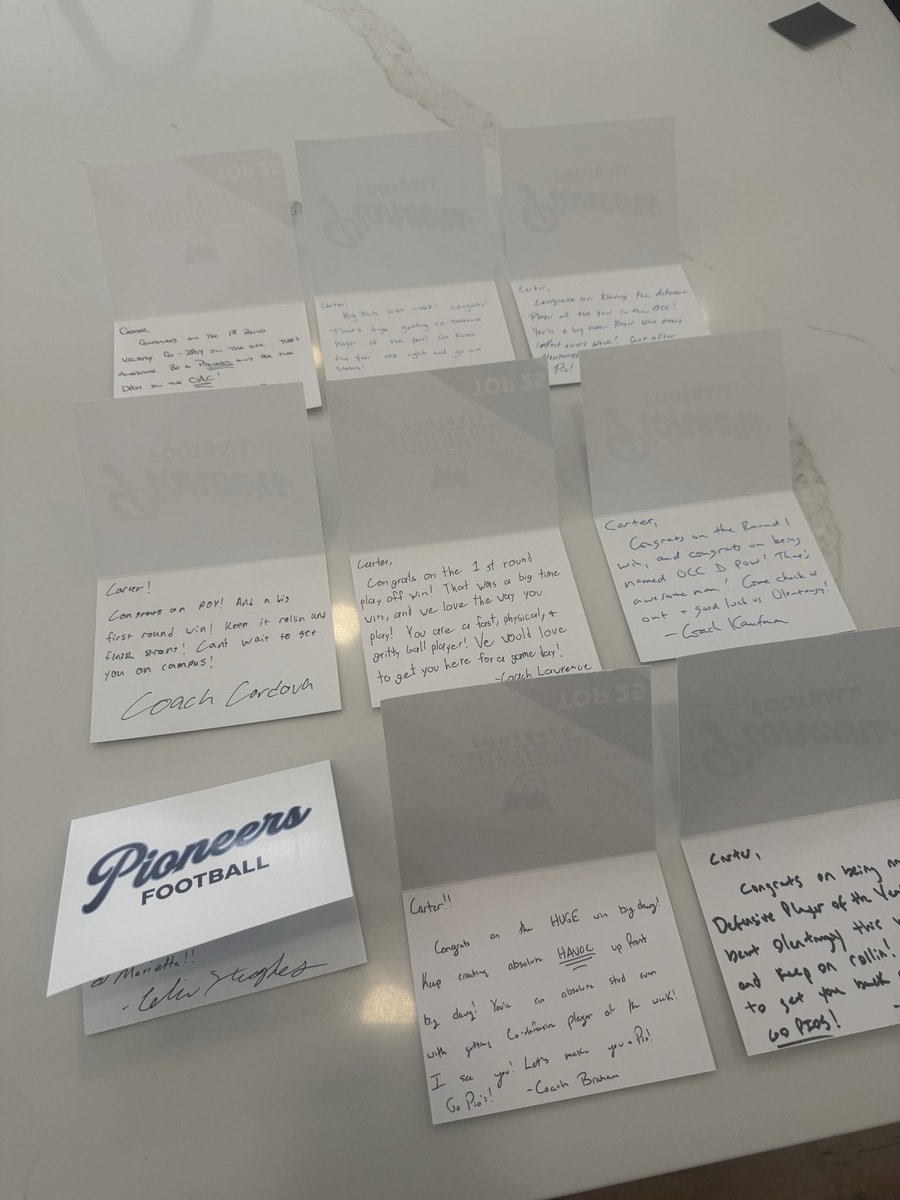 TOP 25
FOOTBALL
MARIETTA
Carter,
Congrats on the 1st Round
victory. Co-DPOY in the OCC... That's
awesome. Be a Pioneer and be the
DPOY in the OAC!
FOOTBALL
Pioneers
Carter,
Big Dub last week! Congrats!
That's huge getting co defensive
player of the year! Go finish
the year out right and go win
States!
FOOTBALL
Pioneers
Carter,
Congrats on being the defensive
Player of the year in the OCC!
You're a big time Player who makes
impact every week! Get after
Olentangy!
Pio!
FOOTBALL
Pioneers
Carter!
Congrats on POY! And a big
first round win! Keep it rollin and
finish strong! Cant wait to get
you on campus!
Coach Cordova
TOP 25
FOOTBALL
MARIETTA
Carter,
Congrats on the 1st round
play off win! That was a big time
win, and we love the way you
play! You are a fast, physical, +
gritty ball player! We would love
to get you here for a game day!
-Coach Lawrence
FOOTBALL
Pioneers
Carter,
Congrats on the Round 1
win, and congrats on being
named OCC D POW! That's
awesome man! Come check us
out + good luck vs Olentangy!
-Coach Kaufman
Pioneers
FOOTBALL
at Marietta!!
TOP 25
FOOTBALL
MARIETTA
Carter!!
Congrats on the HUGE win big dawg!
Keep creating absolute HAVOC up front
big dawg! You're an absolute stud even
with getting Co-defensive player of the week!
I see you! Let's make you a Pio!
Go Pio's! -Coach Braham
FOOTBALL
Pioneers
Carter,
Congrats on being
Defensive Player of the Year
beat Olentangy this
and keep on rollin!
to get you back
GO PIOS!